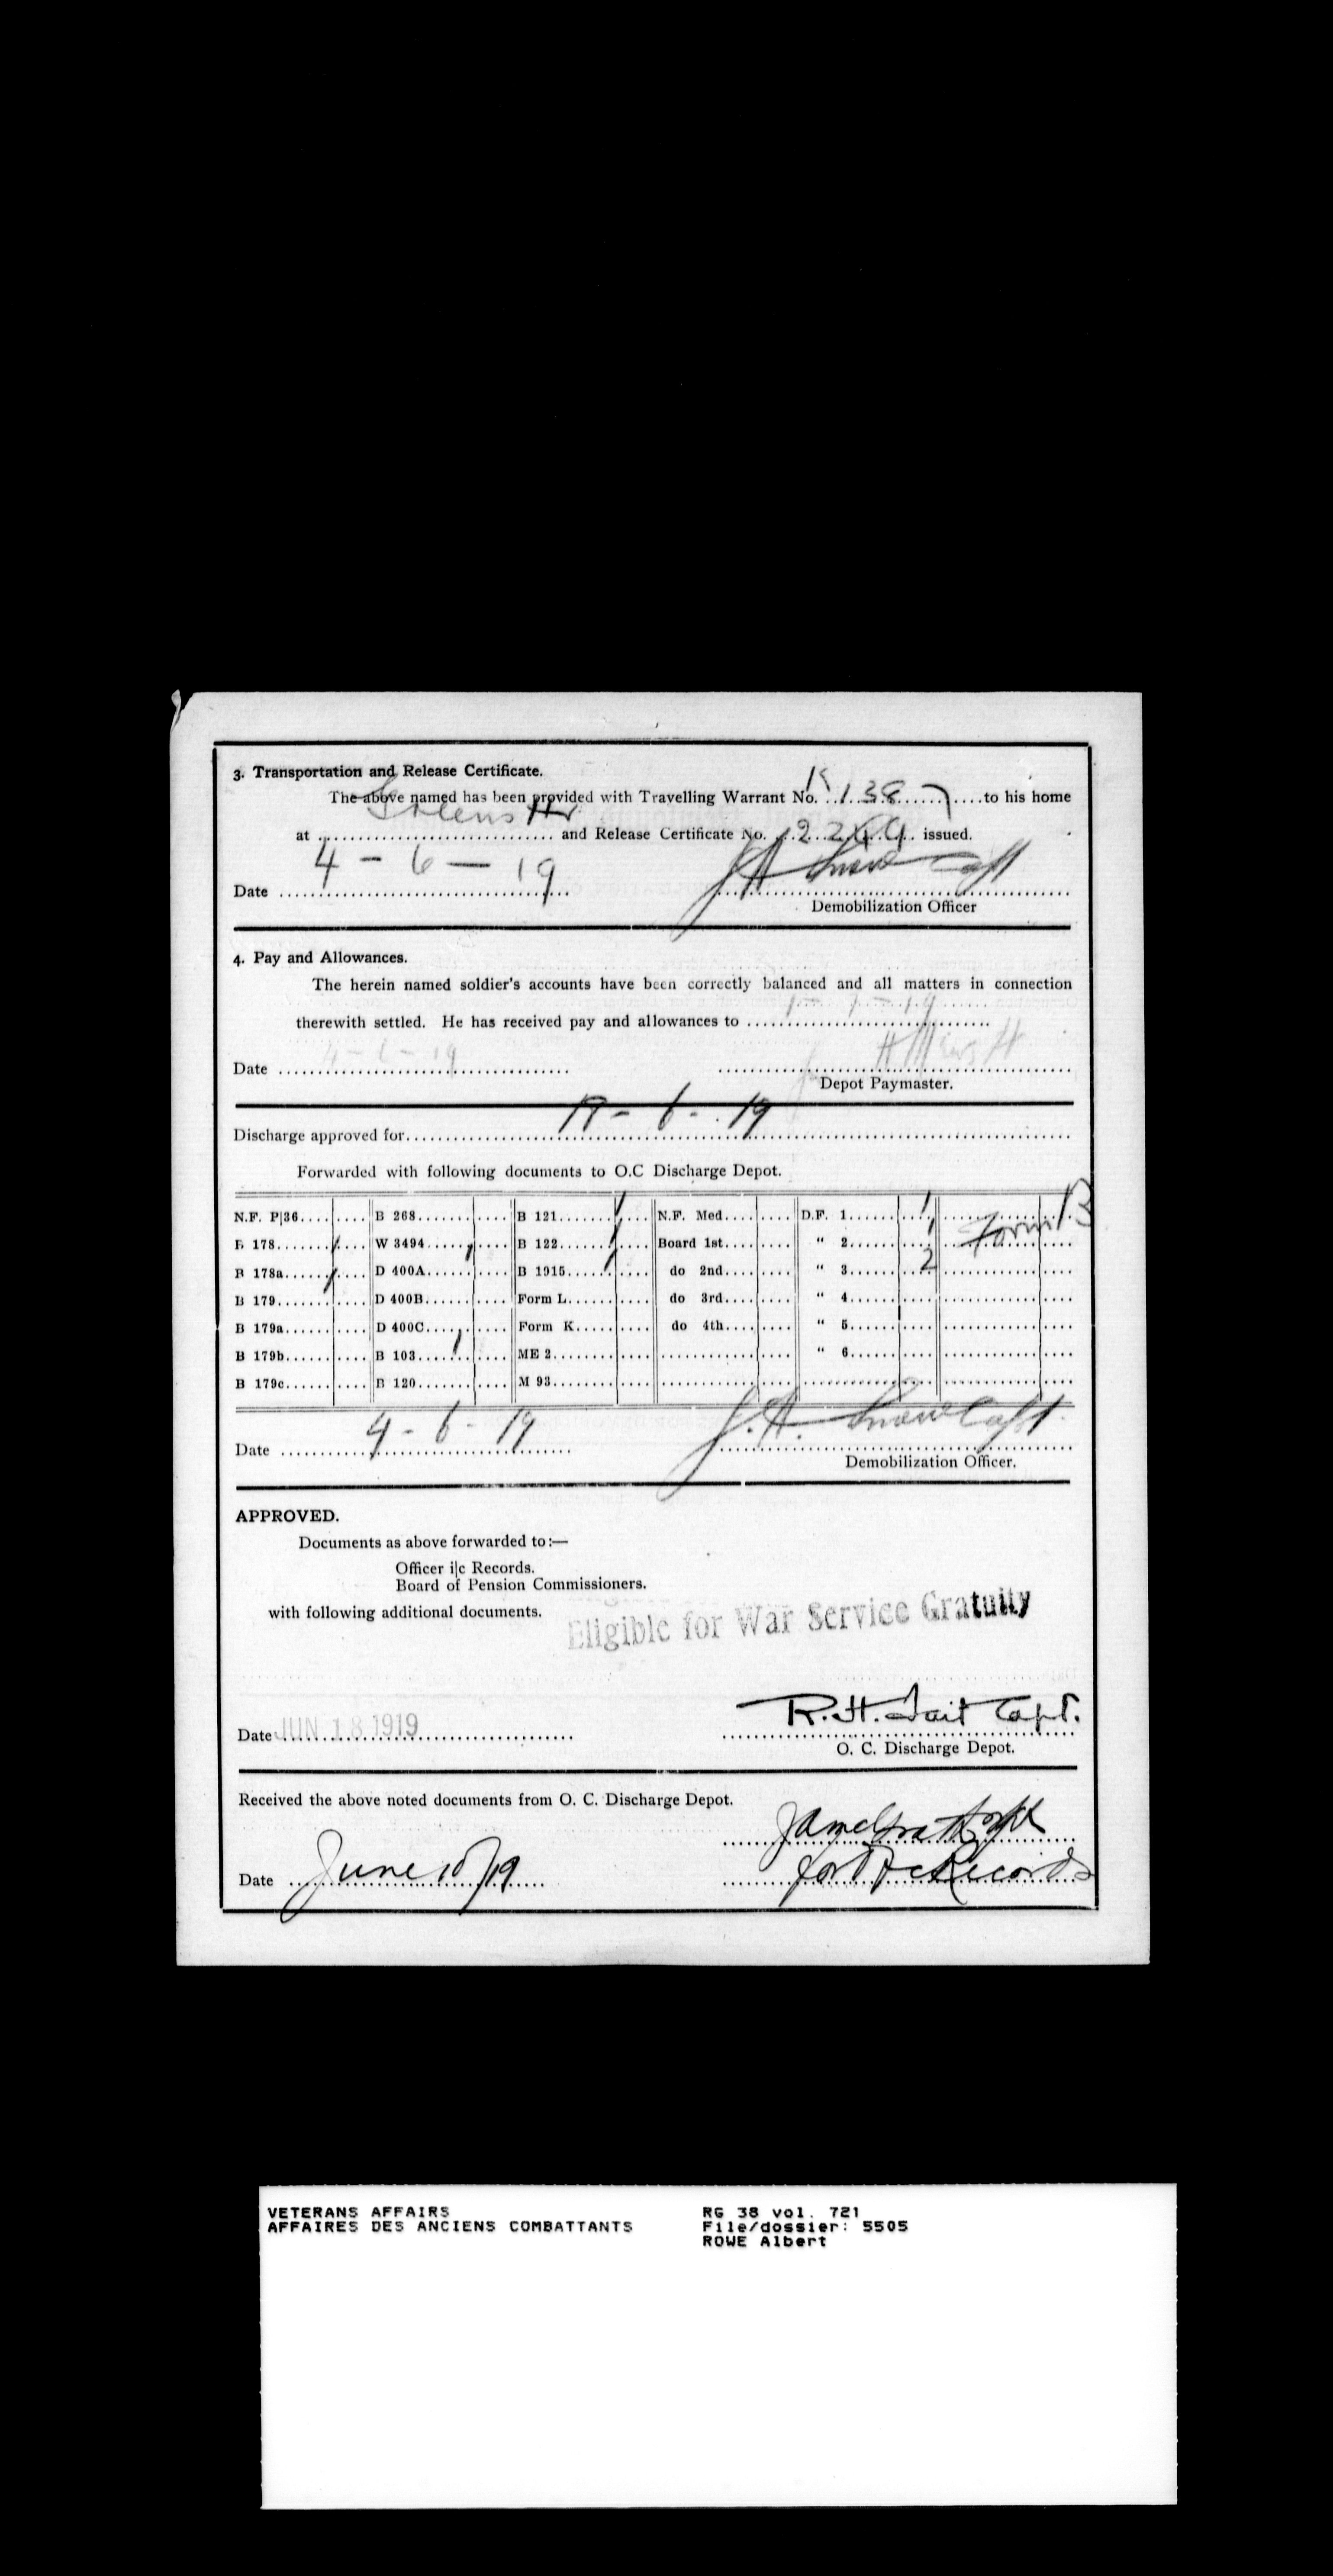 3. Transportation and Release Certificate.
The above named has been provided with Travelling Warrant No. K 1387 to his home
at Greens Hr and Release Certificate No. 2264 issued.
Date 4 - 6 - 19
Demobilization Officer
4. Pay and Allowances.
The herein named soldier's accounts have been correctly balanced and all matters in connection
therewith settled. He has received pay and allowances to 1 - 7 - 19
Date 4 - 6 - 19
Depot Paymaster.
Discharge approved for 18 - 6 - 19
Forwarded with following documents to O.C Discharge Depot.
N.F. P|36 B 268 B 121 / N.F. Med. D.F. 1 1 Form B
B 178 / W 3494 / B 122 / Board 1st " 2 1
B 178a / D 400A B 1915 / do 2nd " 3 2
B 179 D 400B Form L do 3rd " 4
B 179a D 400C Form K do 4th " 5
B 179b B 103 / ME 2 " 6
B 179c B 120 M 93
Date 4 - 6 - 19 J. A. Snow Capt.
Demobilization Officer.
APPROVED.
Documents as above forwarded to:—
Officer i|c Records.
Board of Pension Commissioners.
with following additional documents.
Eligible for War Service Gratuity
Date JUN 18 1919 R. H. Tait Capt.
O. C. Discharge Depot.
Received the above noted documents from O. C. Discharge Depot.
Date June 18/19 for Records
VETERANS AFFAIRS RG 38 vol. 721
AFFAIRES DES ANCIENS COMBATTANTS File/dossier: 5505
ROWE Albert